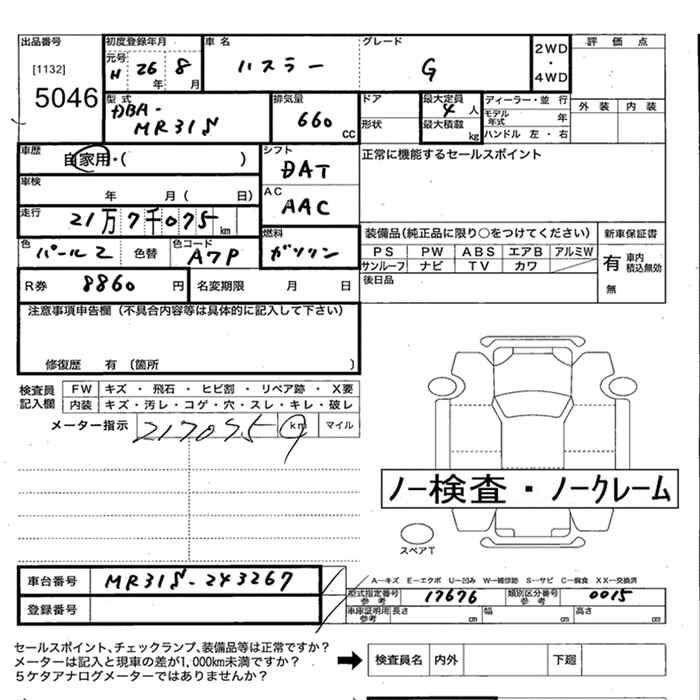 出品番号
[1132]
5046
初度登録年月
元号
H 26 年 8 月
車名
ハスラー
グレード
G
2WD
・
4WD
評価点
外装 内装
型式
DBA-
MR31S
排気量
660 cc
ドア
形状
最大定員
4 人
最大積載
kg
ディーラー・並行
モデル年式 年
ハンドル 左・右
車歴
自家用・( )
シフト
DAT
正常に機能するセールスポイント
車検
年 月( 日)
AC
AAC
走行
21万7千075 km
色
パール2
色替
色コード
A7P
燃料
ガソリン
装備品(純正品に限り○をつけてください)
PS PW ABS エアB アルミW
サンルーフ ナビ TV カワ
新車保証書
有 車内積込無効
無
後日品
R券 8860 円
名変期限 月 日
注意事項申告欄(不具合内容等は具体的に記入して下さい)
修復歴 有(箇所 )
検査員記入欄
FW キズ・飛石・ヒビ割・リペア跡・X要
内装 キズ・汚レ・コゲ・穴・スレ・キレ・破レ
メーター指示 217075 km マイル
ノー検査・ノークレーム
スペアT
車台番号 MR31S-243267
登録番号
A―キズ E―エクボ U―凹み W―補修跡 S―サビ C―腐食 XX―交換済
型式指定番号 参考 17676
類別区分番号 参考 0015
車庫証明用 参考 長さ cm 幅 cm 高さ cm
セールスポイント、チェックランプ、装備品等は正常ですか?
メーターは記入と現車の差が1,000km未満ですか?
5ケタアナログメーターではありませんか?
検査員名 内外 下廻